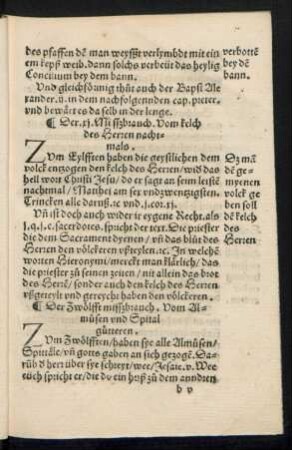 des pfaffen dē man weyſzt verlymbdt mit ein
em kepſz weib. dann ſolchs verbeüt das heylig
Concilium bey dem bann.
Vnd gleichförmig thüt auch der Bapſt Ale
xander. ij. in dem nachfolgennden cap. preter.
vnd bewärt es da ſelb in der lenge.
¶ Der .xj. Miſſzbrauch. Vom kelch
des Herren nacht-
mals.
ZVm Eylfften haben die geyſtlichen dem
volck entzogen den kelch des Herren/ wid das
hell wort Chriſti Jeſu/ do er ſagt an ſeim leiſtē
nachtmal/ Mathei am ſex vndzwentzigſten.
Trincken alle daruſz. ꝛc vnd .j. cor. xj.
Vñ iſt doch auch wider ir eygene Recht. als
j. q. j. c. ſacerdotes. ſpricht der text. Die prieſter
die dem Sacrament dyenen/ vñ das blüt des
Herren den völckeren vſzteylen. ꝛc. In welchē
worten Hieronymi/ merckt man klärlich/ das
die prieſter zü ſeinen zeiten/ nit allein das brot
des Herrē/ ſonder auch den kelch des Herren
vſzgeteylt vnd gereycht haben den völckeren.
¶ Der Zwölfft miſſzbrauch. Vom Al-
müſen vnd Spital
gütteren.
ZVm Zwölfften/ haben ſye alle Almüſen/
Spittäle/ vñ gotts gaben an ſich gezogē. Da-
rüb d herr über ſye ſchreyt/ wee/ Jeſaie. v. Wee
eüch ſpricht er/ die do ein huſz zü dem anndren
b v
verbottē
bey dē
bann.
Dz mā
dē ge-
myenen
volck ge
ben ſoll
dē kelch
des
Herren